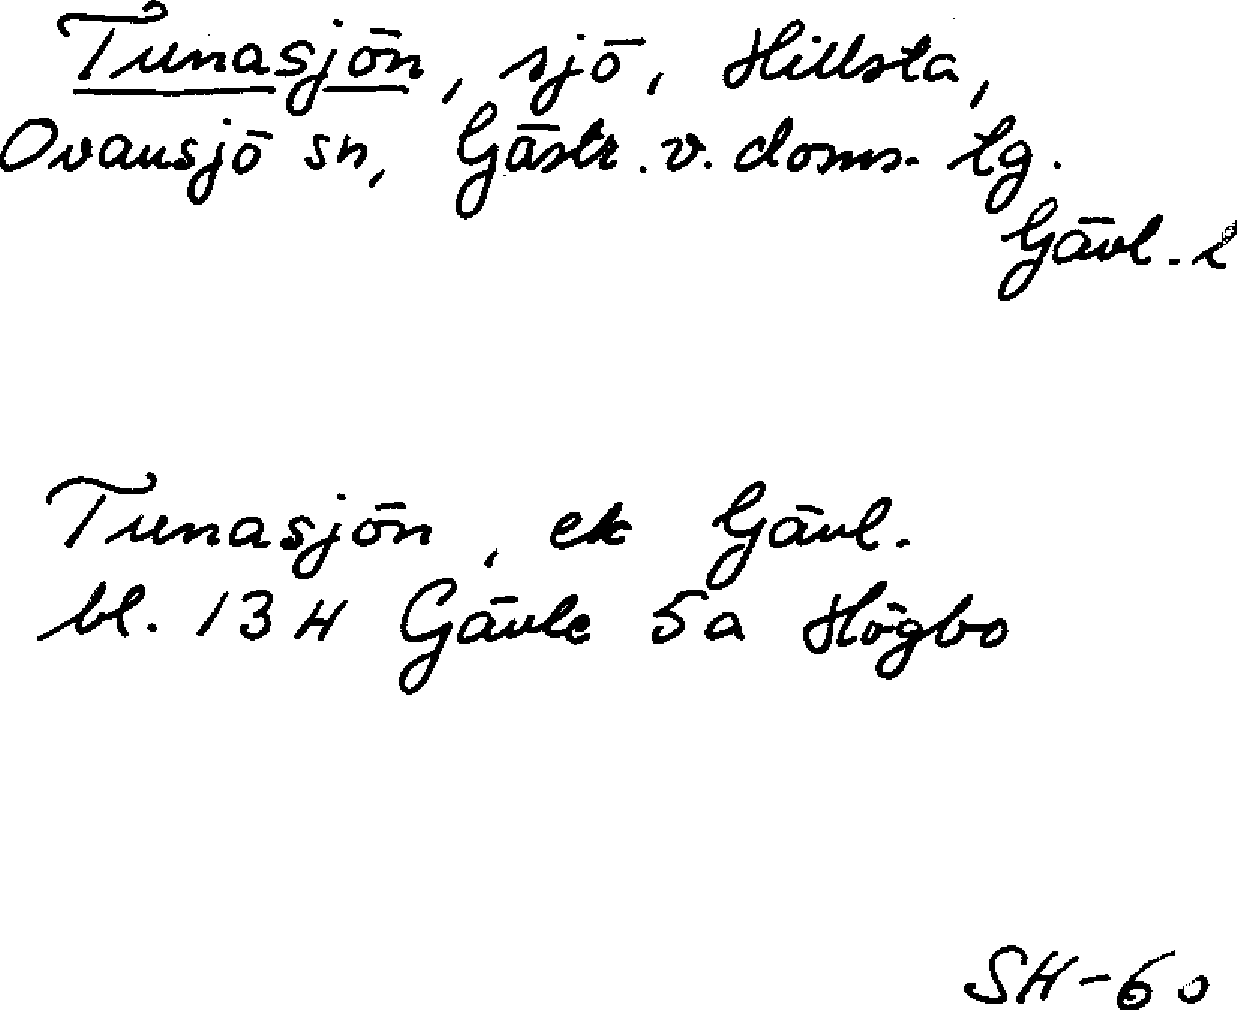 Tunasjön, sjö, Hillsta,
Ovansjö sn, Gästr. v. doms. tg.
Gävl. l
Tunasjön, ek Gävl.
bl. 13 H Gävle 5a Högbo
SH-60